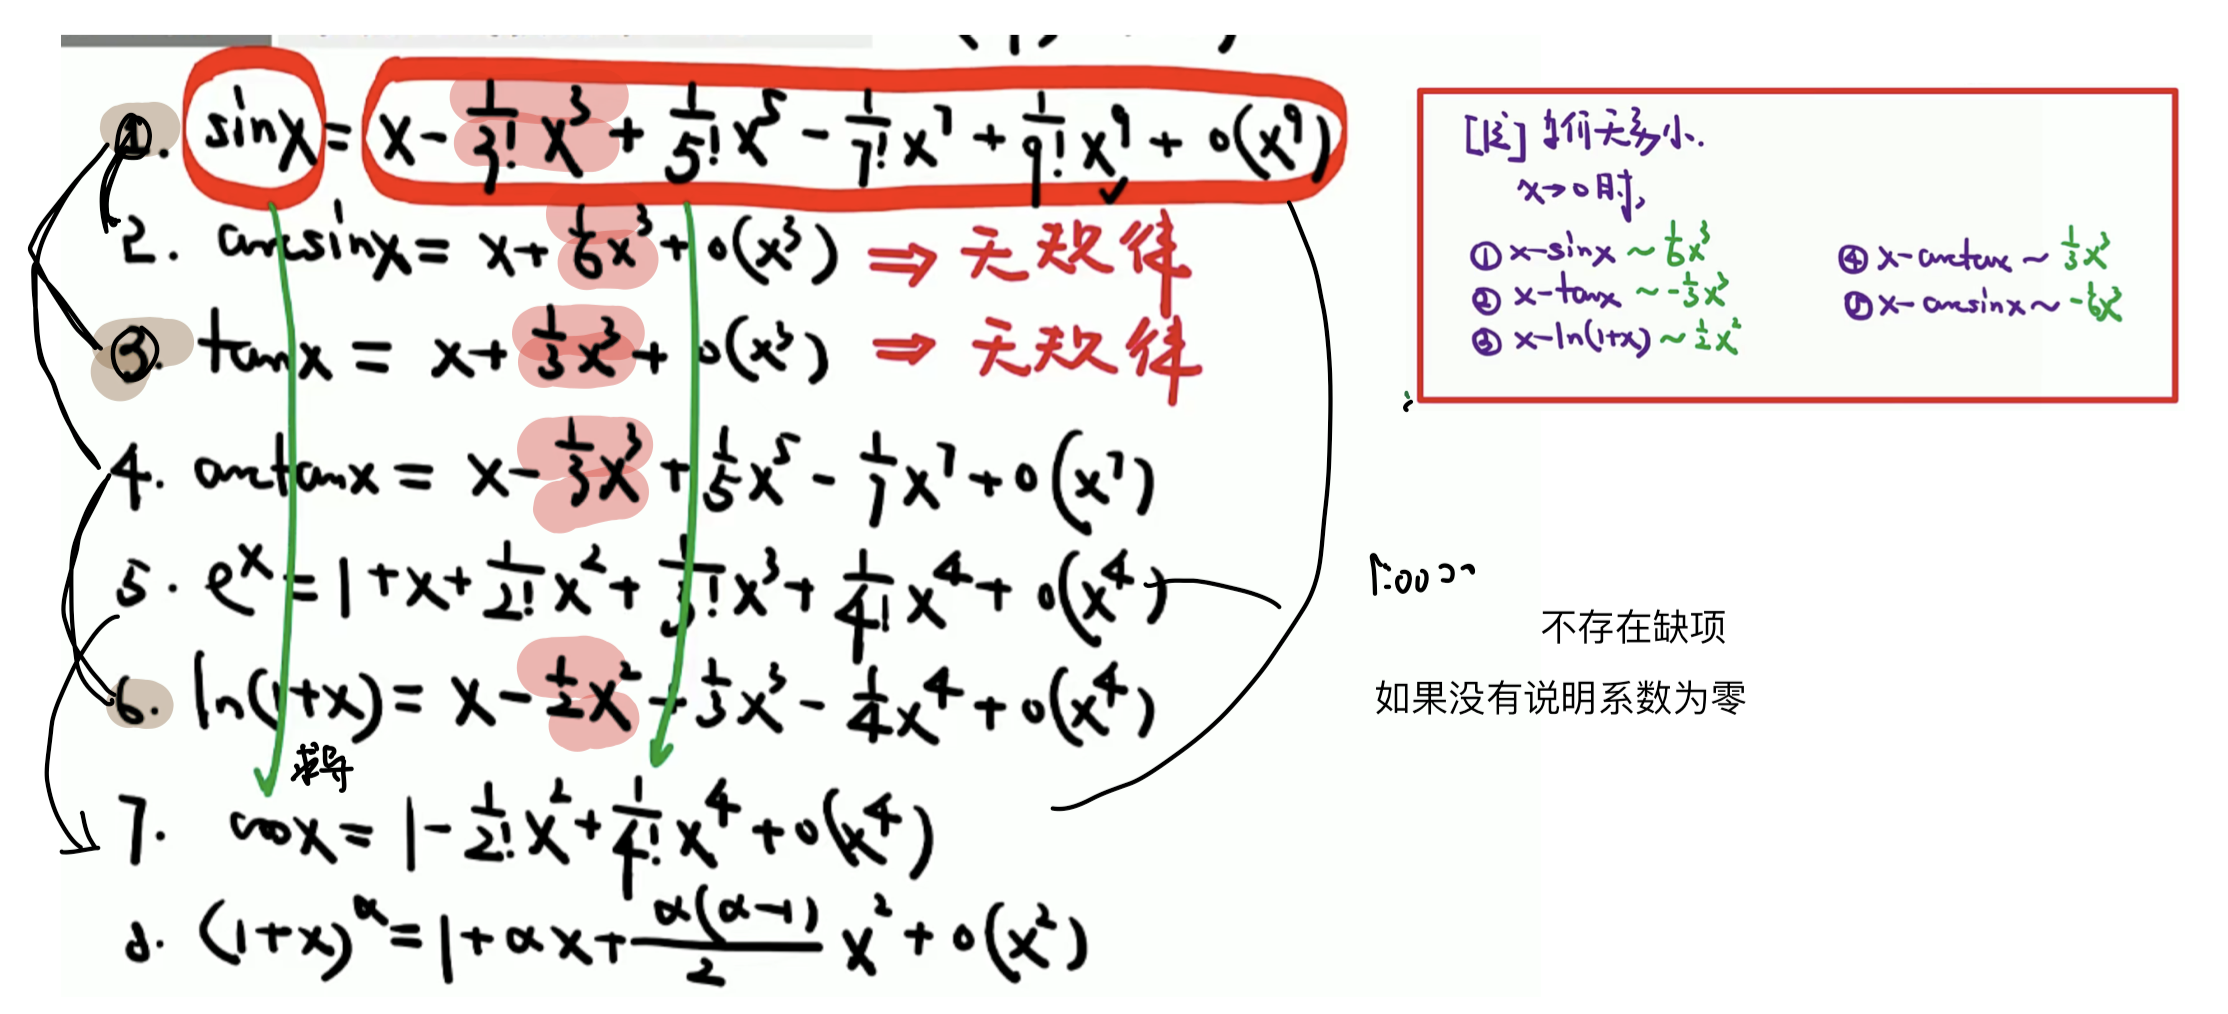 1. sinx = x - 1/3! x³ + 1/5! x⁵ - 1/7! x⁷ + 1/9! x⁹ + o(x⁹)
2. arcsinx = x + 1/6 x³ + o(x³) ⇒ 无规律
3. tanx = x + 1/3 x³ + o(x³) ⇒ 无规律
4. arctanx = x - 1/3 x³ + 1/5 x⁵ - 1/7 x⁷ + o(x⁷)
5. eˣ = 1 + x + 1/2! x² + 1/3! x³ + 1/4! x⁴ + o(x⁴)
6. ln(1+x) = x - 1/2 x² + 1/3 x³ - 1/4 x⁴ + o(x⁴)
求导
7. cosx = 1 - 1/2! x² + 1/4! x⁴ + o(x⁴)
8. (1+x)^α = 1 + αx + α(α-1)/2 x² + o(x²)
[注] 等价无穷小.
x→0时,
① x-sinx ~ 1/6 x³
② x-tanx ~ -1/3 x³
③ x-ln(1+x) ~ 1/2 x²
④ x-arctanx ~ 1/3 x³
⑤ x-arcsinx ~ -1/6 x³
不存在缺项
如果没有说明系数为零